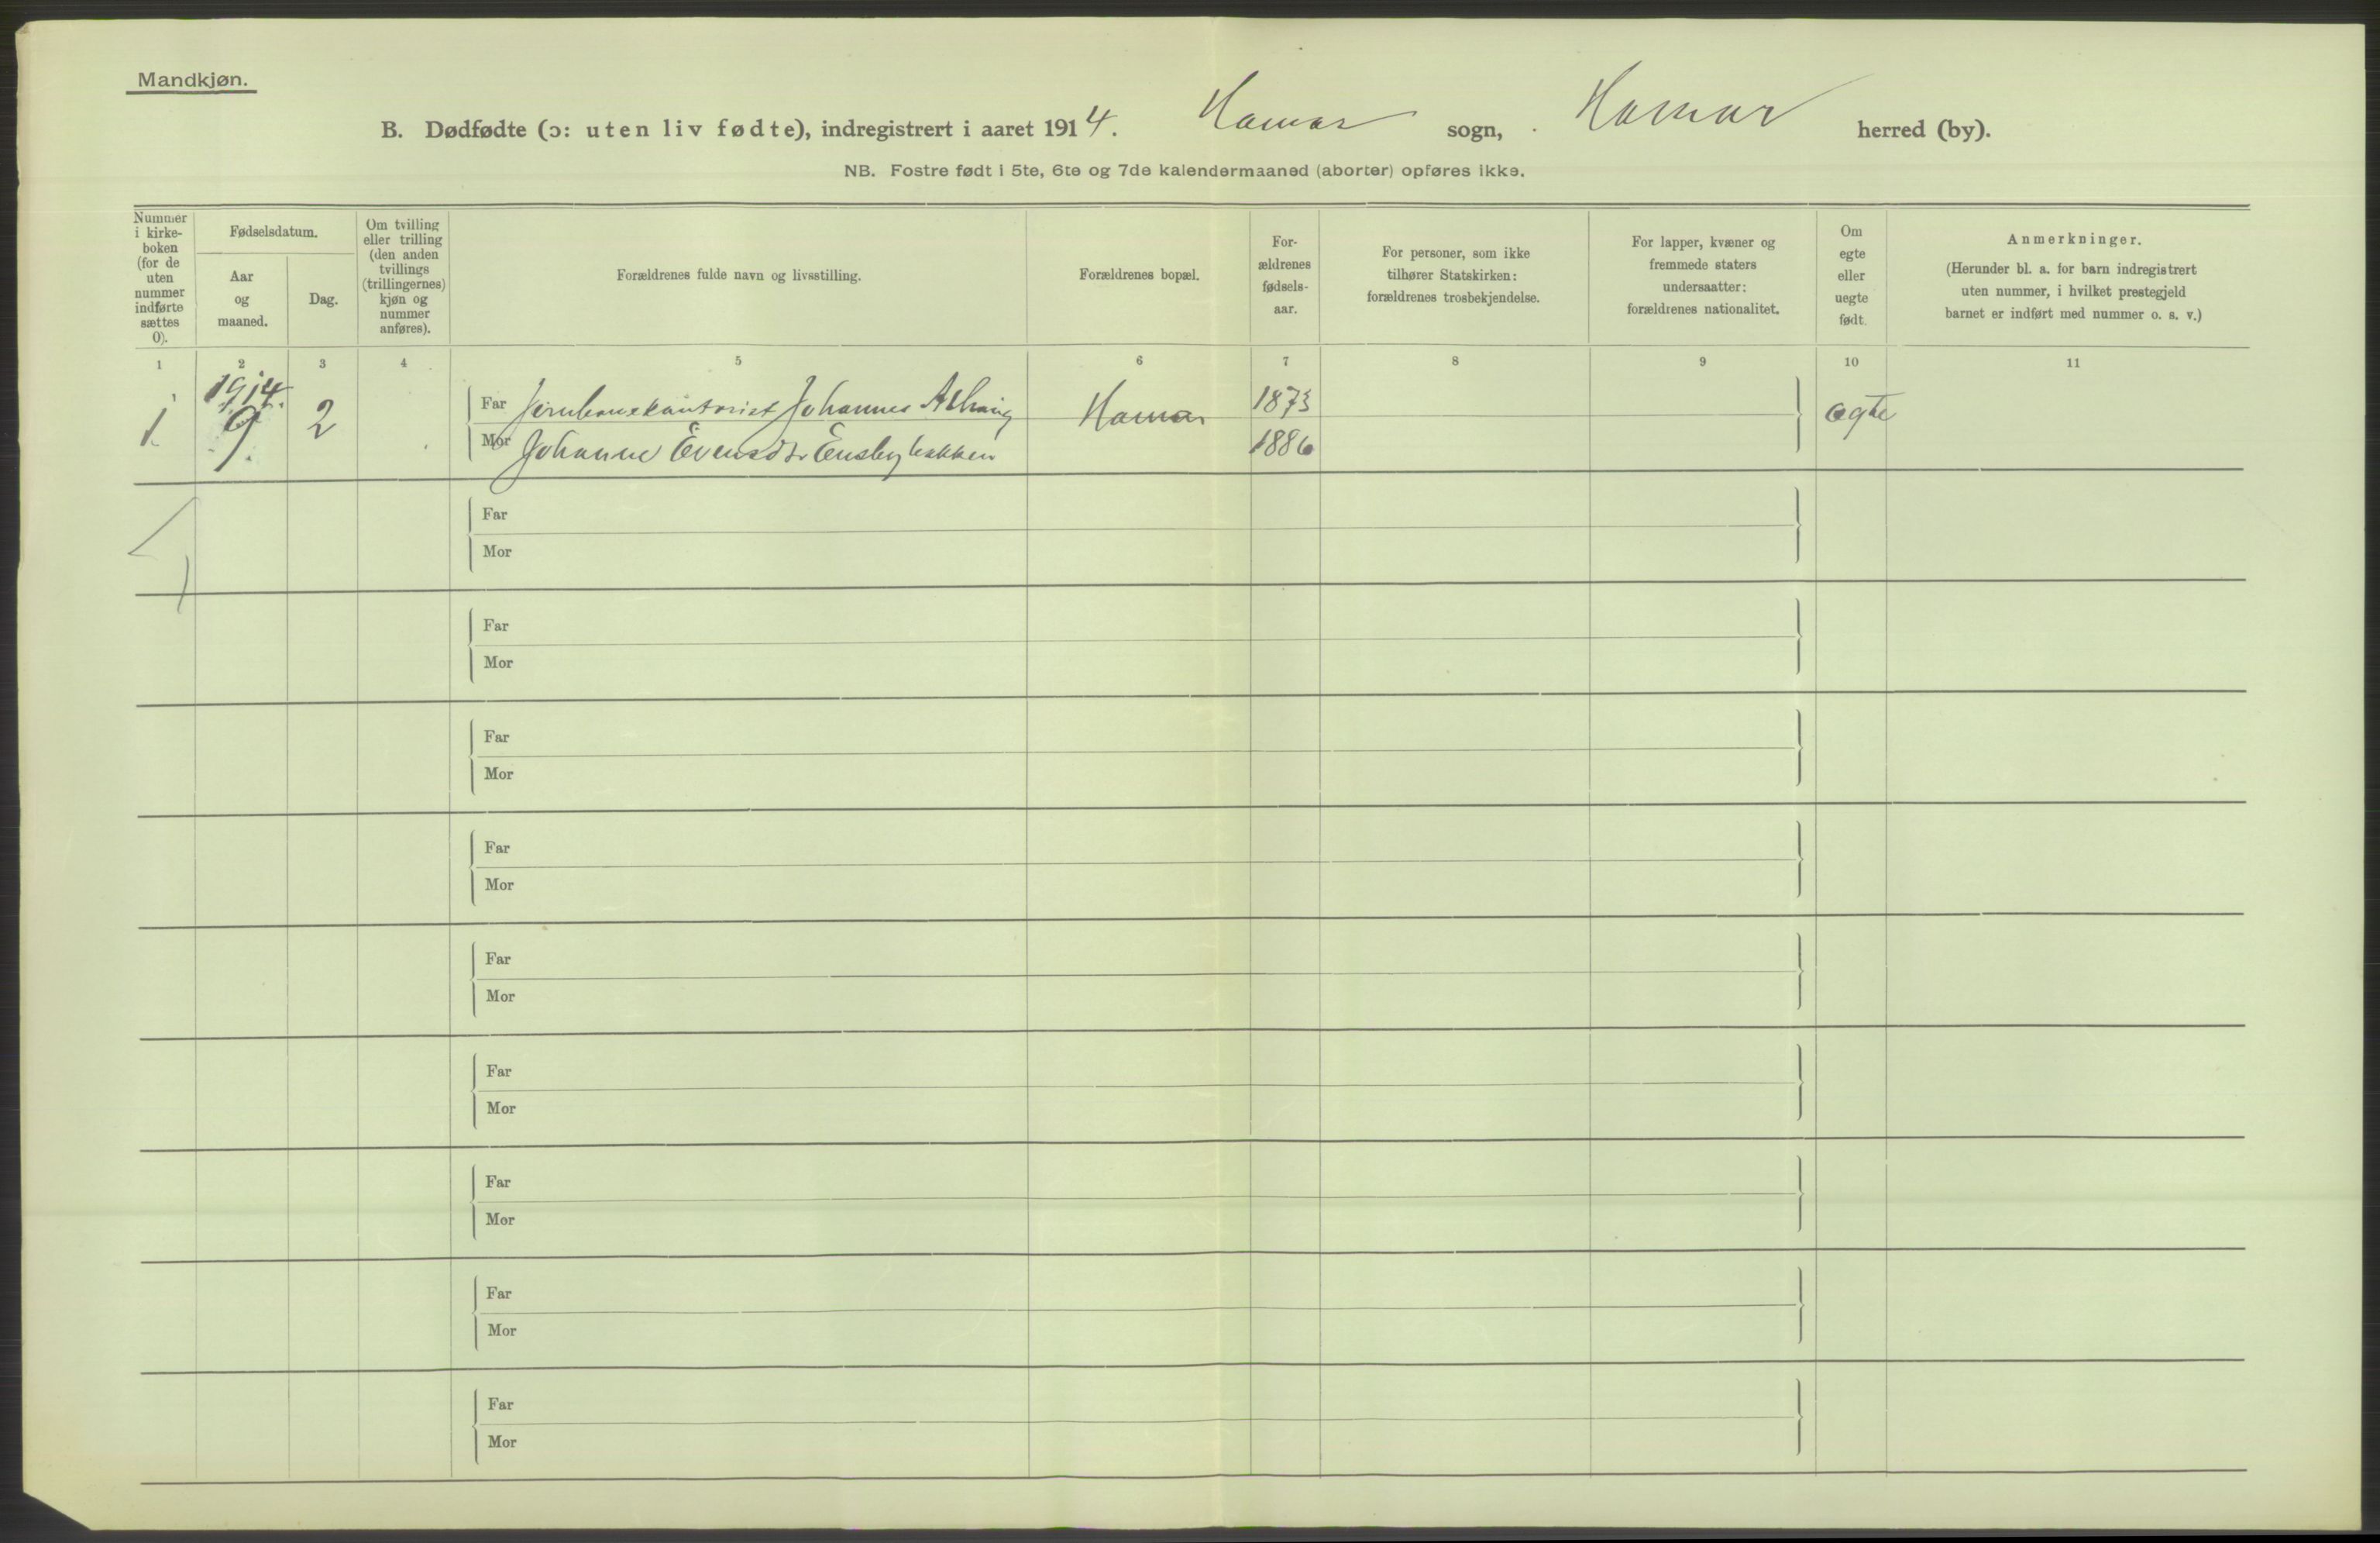 Mandkjøn.
B. Dødfødte (ɔ: uten liv fødte), indregistrert i aaret 1914. Hamar sogn, Hamar herred (by).
NB. Fostre født i 5te, 6te og 7de kalendermaaned (aborter) opføres ikke.
Nummer
i kirke-
boken
(for de
uten
nummer
indførte
sættes
0).
Fødselsdatum.
Aar
og
maaned.
Dag.
Om tvilling
eller trilling
(den anden
tvillings
(trillingernes)
kjøn og
nummer
anføres).
Forældrenes fulde navn og livsstilling.
Forældrenes bopæl.
For-
ældrenes
fødsels-
aar.
For personer, som ikke
tilhører Statskirken:
forældrenes trosbekjendelse.
For lapper, kvæner og
fremmede staters
undersaatter:
forældrenes nationalitet.
Om
egte
eller
uegte
født.
Anmerkninger.
(Herunder bl. a. for barn indregistrert
uten nummer, i hvilket prestegjeld
barnet er indført med nummer o. s. v.)
1 2 3 4 5 6 7 8 9 10 11
1914.
1 9. 2
Far Jernbanekontorist Johannes Hamar 1873 egte
Mor Johanne Evensdtr Ensbybakken 1886
Far
Mor
Far
Mor
Far
Mor
Far
Mor
Far
Mor
Far
Mor
Far
Mor
Far
Mor
Far
Mor